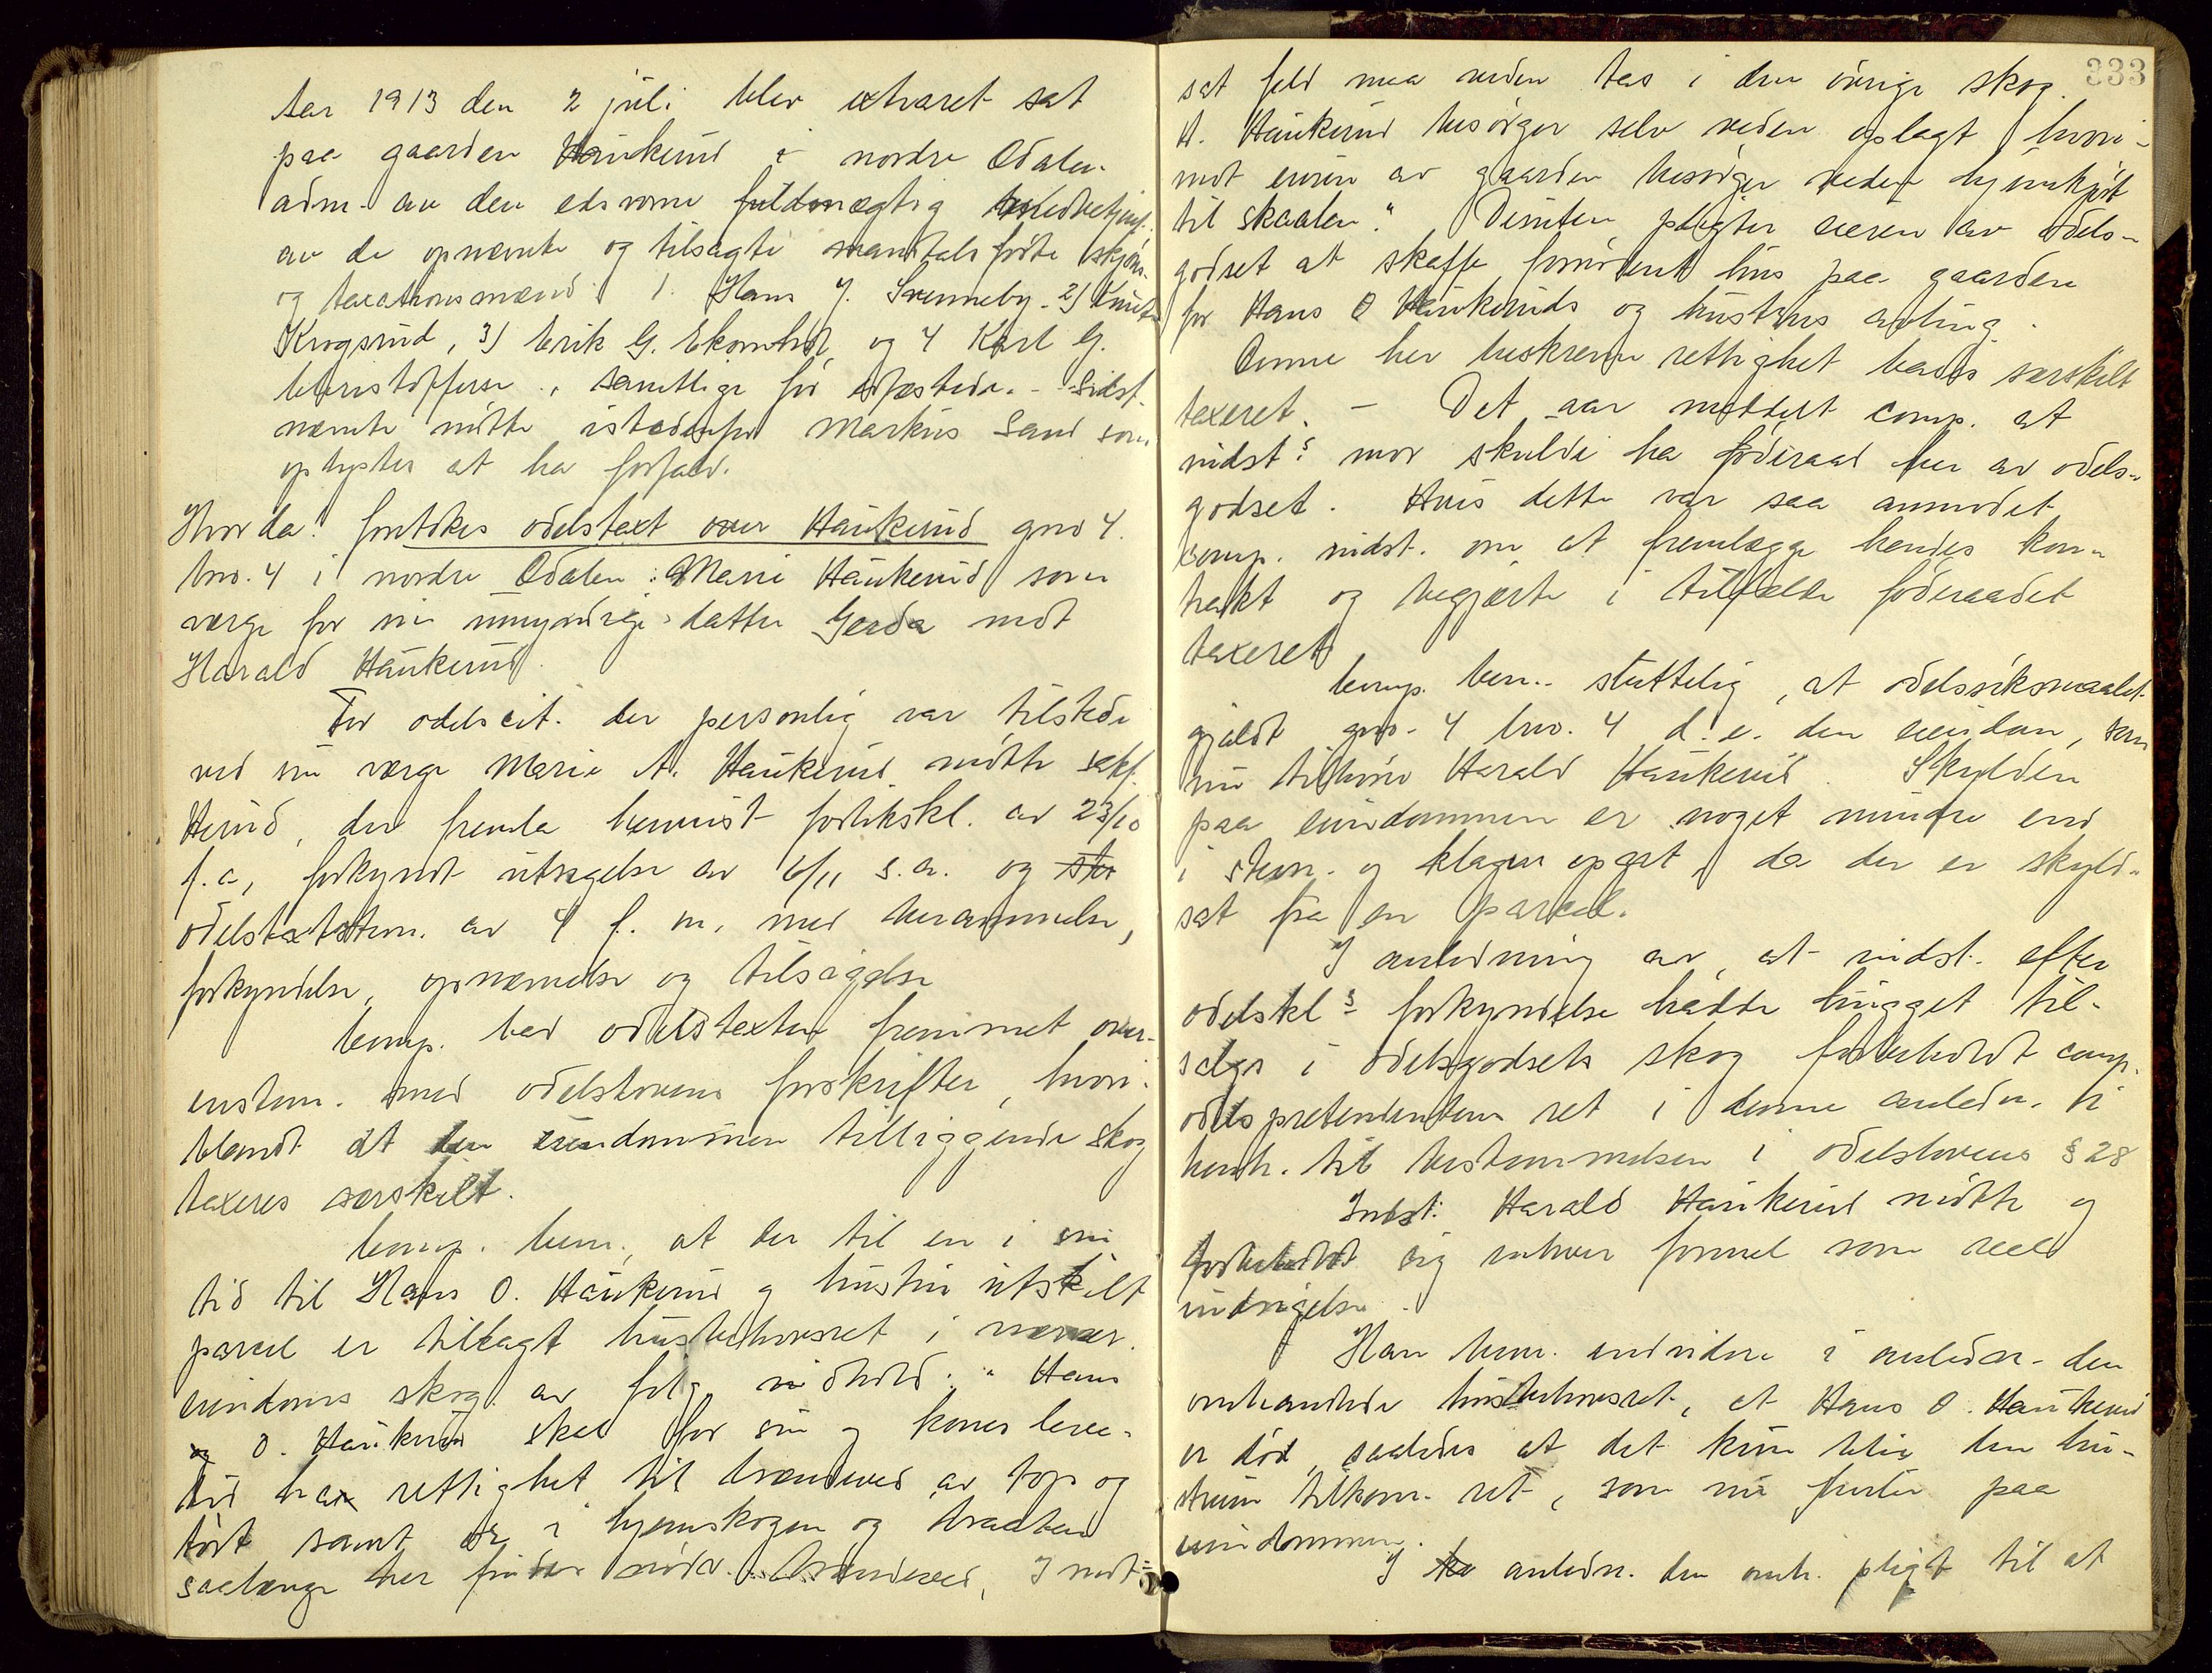 Aar 1913 den 2 juli blev extraret sat
paa gaarden Haukerud i nordre Odalen.
adm. av den edsvorne fuldmægtig
av de opnævnte og tilsagte mandtalsførte skjøns-
og taxationsmænd 1. Hans J. Svenneby. 2)
Krogsrud, 3) Erik G. Ekornhol og 4 Karl G.
Christoffersen, samtlige før edfæstede. - Sidst-
nævnte møtte istedenfor Markus Sand som
oplystes at ha forfald.
Hvorda: foretokes odelstaxt over Haukerud gno 4.
bno. 4 i nordre Odalen: Marie Haukerud som
værge for sin umyndige datter Gerda mot
Harald Haukerud.
For odelscit. der personlig var tilstede
ved sin værge Marie A. Haukerud møtte sakf.
Herud, der fremla bevist forlikskl. av 23/10
f.a., forkyndt utsigelse av 6/11 s.a. og
odelstaxtstevn. av 4 f. m. med berammelse,
forkyndelse, opnævnelse og tilsigelse
Comp. bad odelstaxten fremmet over-
enstem. med odelslovens forskrifter, hvori-
blandt at den eiendommen tilliggende skog
taxeres særskilt.
Comp. bem., at der til en i sin
tid til Hans O. Haukerud og hustru utskilt
parcel er tillagt husbehovsret i nærvær.
eiendoms skog av følg. indhold: "Hans
og O. Haukerud skal for sin og kones leve-
tid ha rettighet til brændeved av top og
tørt samt or i hjemskogen og braaten
saalænge her findes nødv. brændeved, I mot-
333
sat fald maa veden tas i den øvrige skog.
H. Haukerud besørger selv veden oplagt hvori-
mot eieren av gaarden besørger veden hjemkjørt
til skaalen". Desuten pligter eieren av odels-
godset at skaffe fornødent hus paa gaarden
for Hans O Haukeruds og hustrus avling.
Denne her beskrevne rettighet bades særskilt
taxeret. - Det var meddelt comp. at
indst.s mor skulde ha føderaad her av odels-
godset. Hvis dette var saa anmodet
comp. indst. om at fremlægge hendes kon-
trakt og begjærte i tilfælde føderaadet
taxeret
Comp. bem. sluttelig, at odelssøksmaalet
gjaldt gno. 4 bno. 4 d.e. den eiendom, som
nu tilhører Harald Haukerud. Skylden
paa eiendommen er noget mindre end
i stevn. og klagen opgit, da der er skyld-
sat fra en parcel.
I anledning av, at indst. efter
odelskl.s forkyndelse hadde hugget til-
salgs i odelsgodsets skog forbeholdt comp.
odelspretendenten ret i denne anledn. i
henh. til bestemmelsen i odelslovens § 28
Indst. Harald Haukerud møtte og
forbeholdt sig enhver formel som reel
indsigelse.
Han bem. endvidere i anledn. den
omhandlede husbehovsret, at Hans O. Haukerud
er død, saaledes at det kun blir den hu-
struen tilkom. ret, som nu hviler paa
eiendommen.
I anledn. den omh. pligt til at